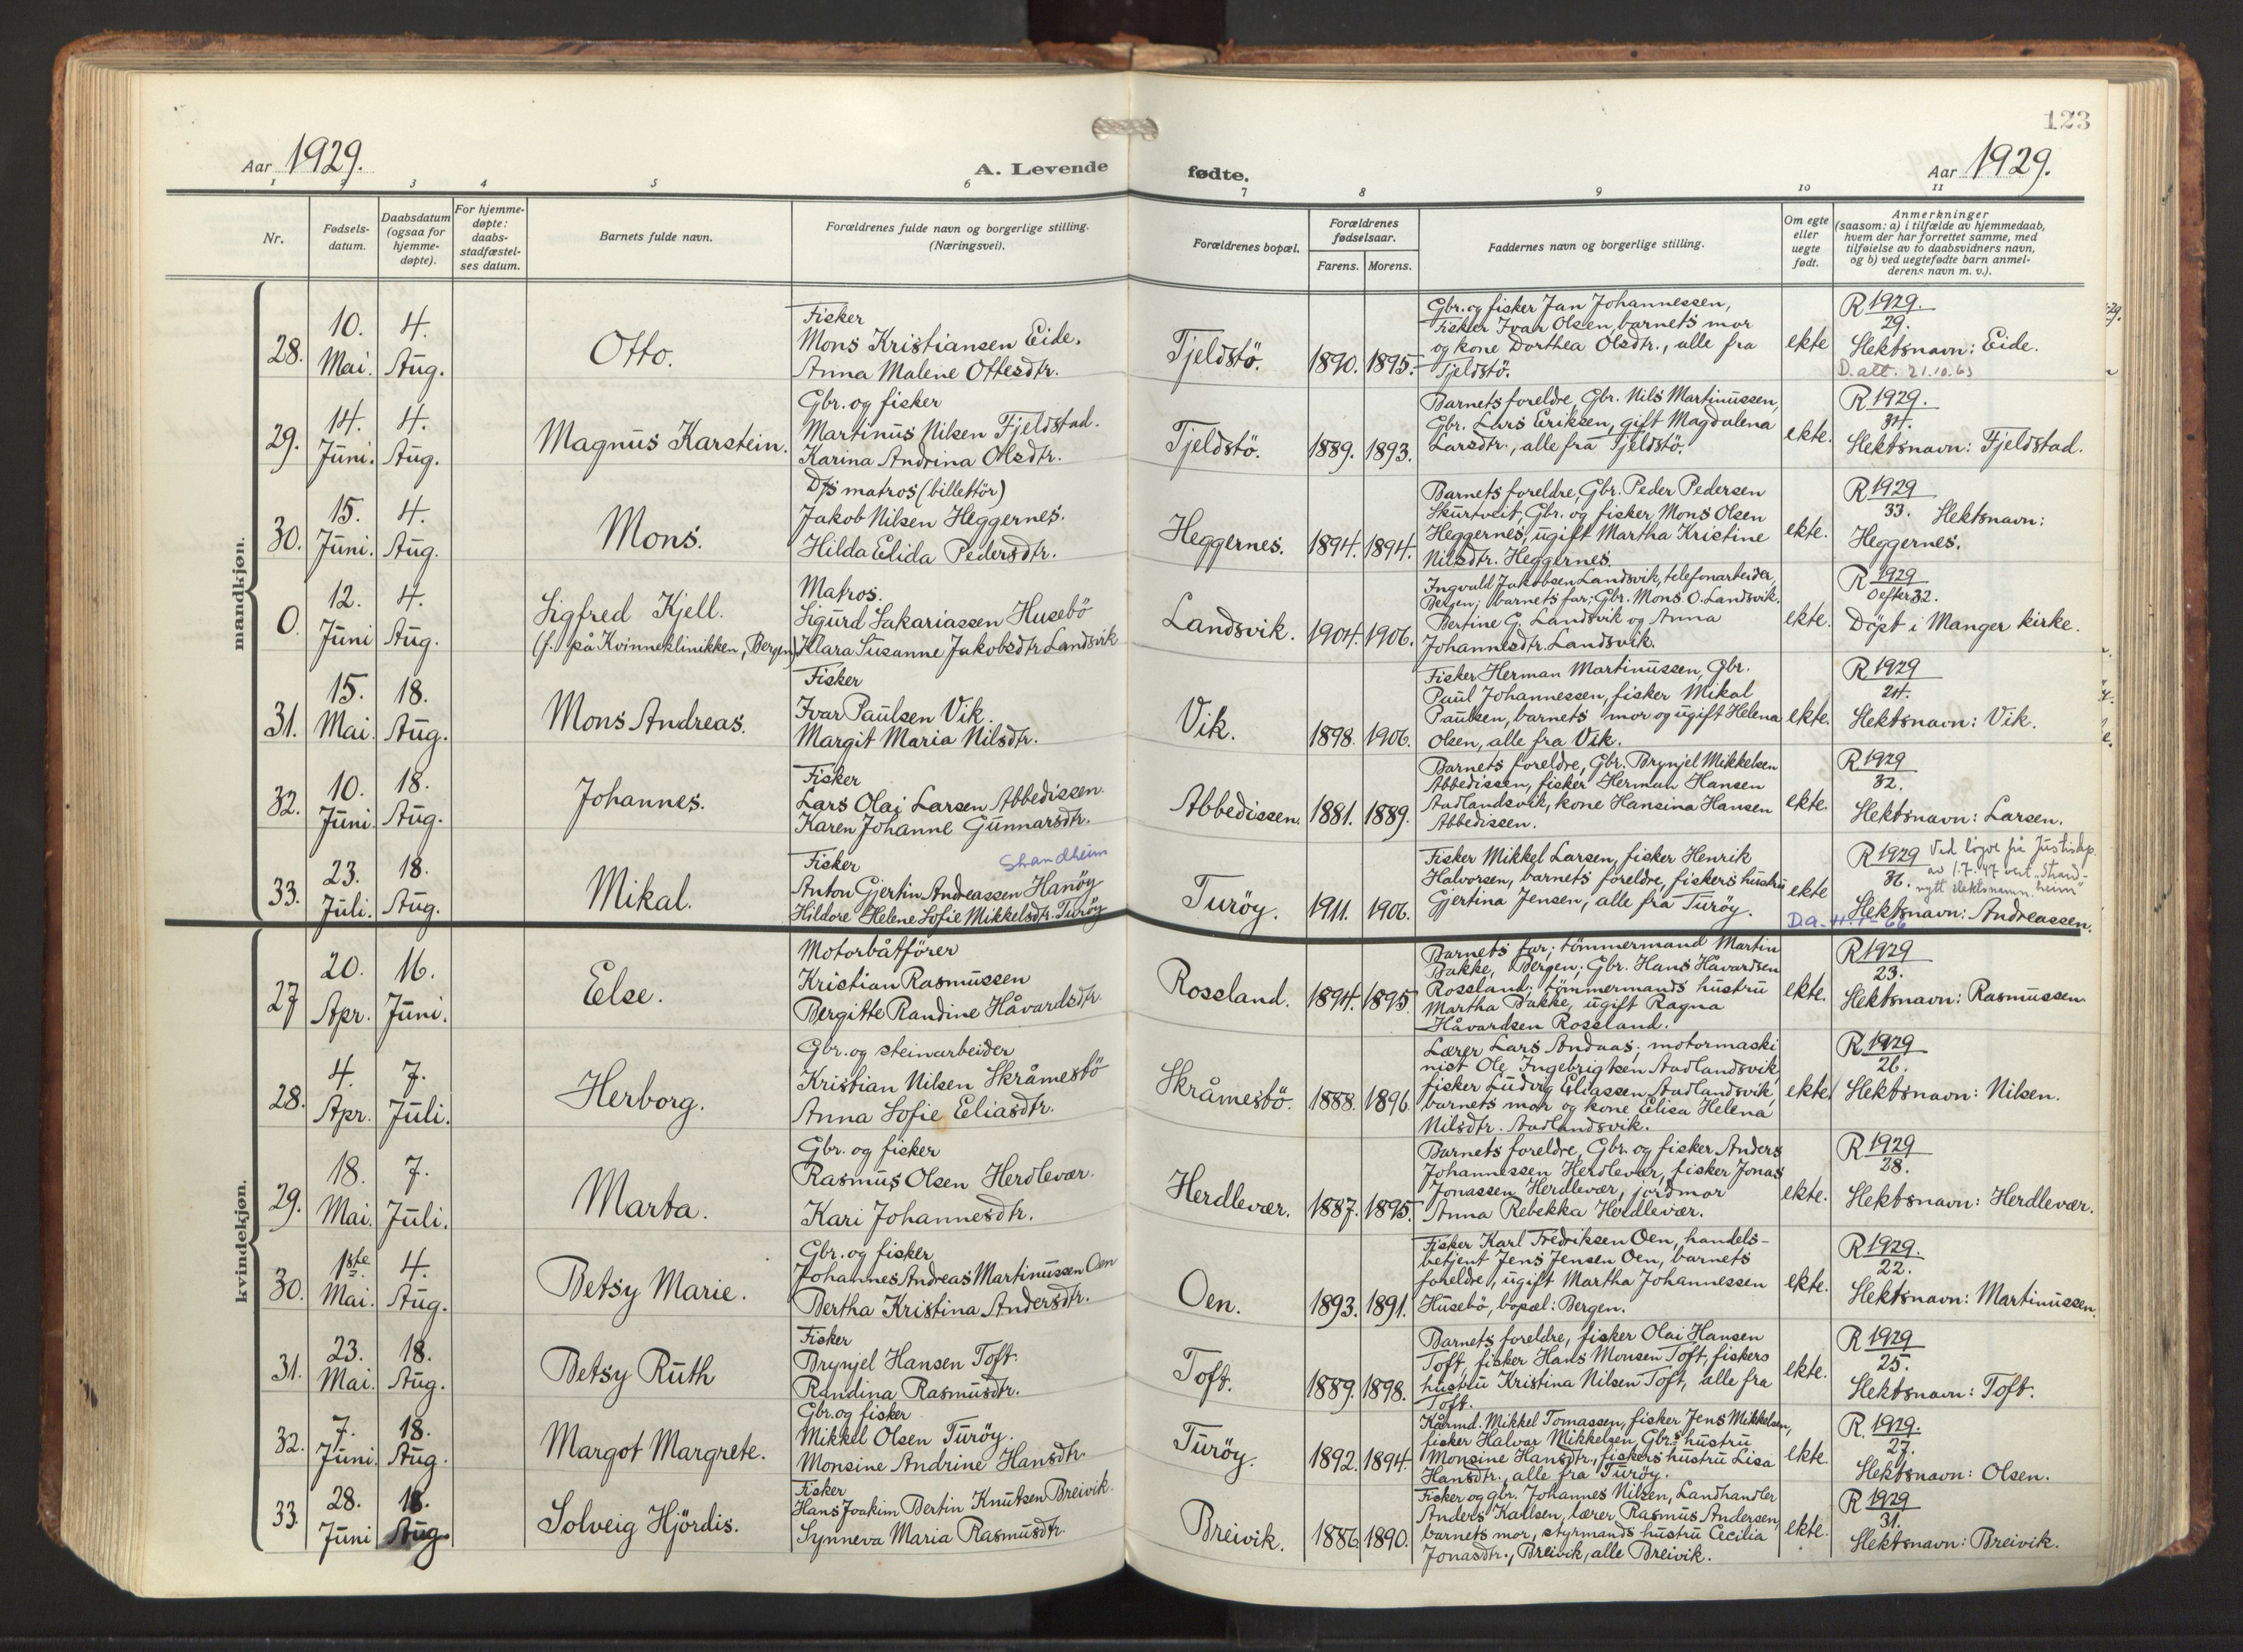 123
Aar 1929.
A. Levende fødte.
Aar 1929.
1 2 3 4 5 6 7 8 9 10 11
Nr.
Fødsels-
datum.
Daabsdatum
(ogsaa for
hjemme-
døpte).
For hjemme-
døpte:
daabs-
stadfæstel-
ses datum.
Barnets fulde navn.
Forældrenes fulde navn og borgerlige stilling.
(Næringsvei).
Forældrenes bopæl.
Forældrenes
fødselsaar.
Farens. Morens.
Faddernes navn og borgerlige stilling.
Om egte
eller
uegte
født.
Anmerkninger
(saasom: a) i tilfælde av hjemmedaab,
hvem der har forrettet samme, med
tilføielse av to daabsvidners navn,
og b) ved uegtefødte barn anmel-
derens navn m. v.).
mandkjøn.
28.
10.
Mai.
4.
Aug.
Otto.
Fisker
Mons Kristiansen Eide.
Anna Malene Ottesdtr.
Tjeldstö.
1890. 1895.
Gbr. og fisker Jan Johannessen,
Fisker Ivar Olsen, barnets mor
og kone Dorthea Olsdtr., alle fra
Tjeldstö.
ekte
R 1929.
29.
Slektsnavn: Eide.
D. att. 21.10.63
29.
14.
Juni.
4.
Aug.
Magnus Karstein.
Gbr. og fisker
Martinus Nilsen Fjeldstad.
Karina Andrina Olsdtr.
Tjeldstö.
1889. 1893.
Barnets foreldre, Gbr. Nils Martinussen,
Gbr. Lars Eriksen, gift Magdalena
Larsdtr., alle fra Tjeldstö.
ekte.
R 1929.
34.
Slektsnavn: Fjeldstad.
30.
15.
Juni.
4.
Aug.
Mons.
D/s matros (billettör)
Jakob Nilsen Heggernes.
Hilda Elida Pedersdtr.
Heggernes.
1894. 1894.
Barnets foreldre, Gbr. Peder Pedersen
Skurtveit, Gbr. og fisker Mons Olsen
Heggernes, ugift Martha Kristine
Nilsdtr. Heggernes.
ekte.
R 1929
33. Slektsnavn:
Heggernes.
0.
12.
Juni
4.
Aug.
Sigfred Kjell.
(f. på Kvinneklinikken, Bergen)
Matros.
Sigurd Sakariassen Husebö
Klara Susanne Jakobsdtr Landsvik
Landsvik.
1904. 1906.
Ingvald Jakobsen Landsvik, telefonarbeider,
Bergen; barnets far; Gbr. Mons O. Landsvik.
Bertine G. Landsvik og Anna
Johannesdtr. Landsvik.
ekte.
R 1929
0 efter 32.
Döpt i Manger kirke.
31.
15.
Mai.
18.
Aug.
Mons Andreas.
Fisker
Ivar Paulsen Vik.
Margit Maria Nilsdtr.
Vik.
1898. 1906.
Fisker Herman Martinussen, Gbr.
Paul Johannessen, fisker Mikal
Paulsen, barnets mor og ugift Helena
Olsen, alle fra Vik.
ekte.
R 1929
24.
Slektsnavn: Vik.
32.
10.
Juni.
18.
Aug.
Johannes.
Fisker
Lars Olai Larsen Abbedissen
Karen Johanne Gunnarsdtr.
Abbedissen.
1881. 1889.
Barnets foreldre, Gbr. Brynjel Mikkelsen
Abbedissen, fisker Herman Hansen
Audlandsvik, kone Hansina Hansen
Abbedissen.
ekte.
R 1929
32.
Slektsnavn: Larsen.
33.
23.
Juli.
18.
Aug.
Mikal.
Fisker
Strandheim
Anton Gjertin Andreassen Hanöy
Hildore Helene Sofie Mikkelsdtr. Turöy
Turöy.
1911. 1906.
Fisker Mikkel Larsen, fisker Henrik
Halvorsen, barnets foreldre, fiskers hustru
Gjertina Jensen, alle fra Turöy.
ekte
R 1929
36.
Ved löyve frå Justisdep.
av 1.7.47 vert "Strand-
heim" nytt slektsnamn
Slektsnavn: Andreassen.
kvindekjøn.
27
20.
Apr.
16.
Juni.
Else.
Motorbåtförer
Kristian Rasmussen
Bergitte Randine Håvardsdtr.
Rossland.
1894. 1895.
Barnets far; tömmermand Martin
Bakke, Bergen; Gbr. Hans Håvardsen
Rossland; tömmermands hustru
Martha Bakke, ugift Ragna
Håvardsen Rossland.
ekte.
R 1929
23.
Slektsnavn: Rasmussen.
28.
4.
Apr.
7.
Juli.
Herborg.
Gbr. og steinarbeider
Kristian Nilsen Skråmestö
Anna Sofie Eliasdtr.
Skråmestö.
1888. 1896.
Lærer Lars Andaas, motormaski
nist Ole Ingebrigtsen Audlandsvik,
fisker Ludvig Eliassen Audlandsvik,
barnets mor og kone Elisa Helena
Nilsdtr. Audlandsvik.
ekte.
R 1929
26.
Slektsnavn: Nilsen.
29.
18.
Mai.
7.
Juli.
Marta.
Gbr. og fisker
Rasmus Olsen Herdlevær.
Kari Johannesdtr.
Herdlevær.
1887. 1895.
Barnets foreldre, Gbr. og fisker Anders
Johannessen Herdlevær, fisker Jonas
Jonassen Herdlevær, jordmor
Anna Rebekka Herdlevær.
ekte.
R 1929
28.
Slektsnavn: Herdlevær.
30.
1ste
Mai.
4.
Aug.
Betsy Marie.
Gbr. og fisker
Johannes Andreas Martinussen Oen
Bertha Kristina Andersdtr.
Oen.
1893. 1891.
Fisker Karl Fredriksen Oen, handels-
betjent Jens Jensen Oen, barnets
foreldre, ugift Martha Johannessen
Husebö, bopæl: Bergen.
ekte.
R 1929.
22.
Slektsnavn: Martinussen.
31.
23.
Mai.
18.
Aug.
Betsy Ruth
Fisker
Brynjel Hansen Toft.
Randina Rasmusdtr.
Toft.
1889. 1898.
Barnets foreldre, fisker Olai Hansen
Toft, fisker Hans Monsen Toft, fiskers
hustru Kristina Nilsen Toft, alle fra
Toft.
ekte.
R 1929
25.
Slektsnavn: Toft.
32.
7.
Juni.
18.
Aug.
Margot Margrete.
Gbr. og fisker
Mikkel Olsen Turöy.
Monsine Andrine Hansdtr.
Turöy.
1892. 1894.
Kårmd. Mikkel Tomassen, fisker Jens Mikkelsen,
fisker Halvar Mikkelsen, Gbr.s hustru
Monsine Hansdtr., fiskers hustru Lisa
Hansdtr., alle fra Turöy.
ekte.
R 1929.
27.
Slektsnavn: Olsen.
33.
28.
Juni
18.
Aug.
Solveig Hjördis.
Fisker
Hans Joakim Bertin Knutsen Breivik.
Synneva Maria Rasmusdtr.
Breivik.
1886. 1890.
Fisker og gbr. Johannes Nilsen, Landhandler
Anders Karlsen, lærer Rasmus Andersen,
barnets mor, styrmands hustru Cecilia
Jonasdtr., Breivik, alle Breivik.
ekte.
R 1929
31.
Slektsnavn: Breivik.